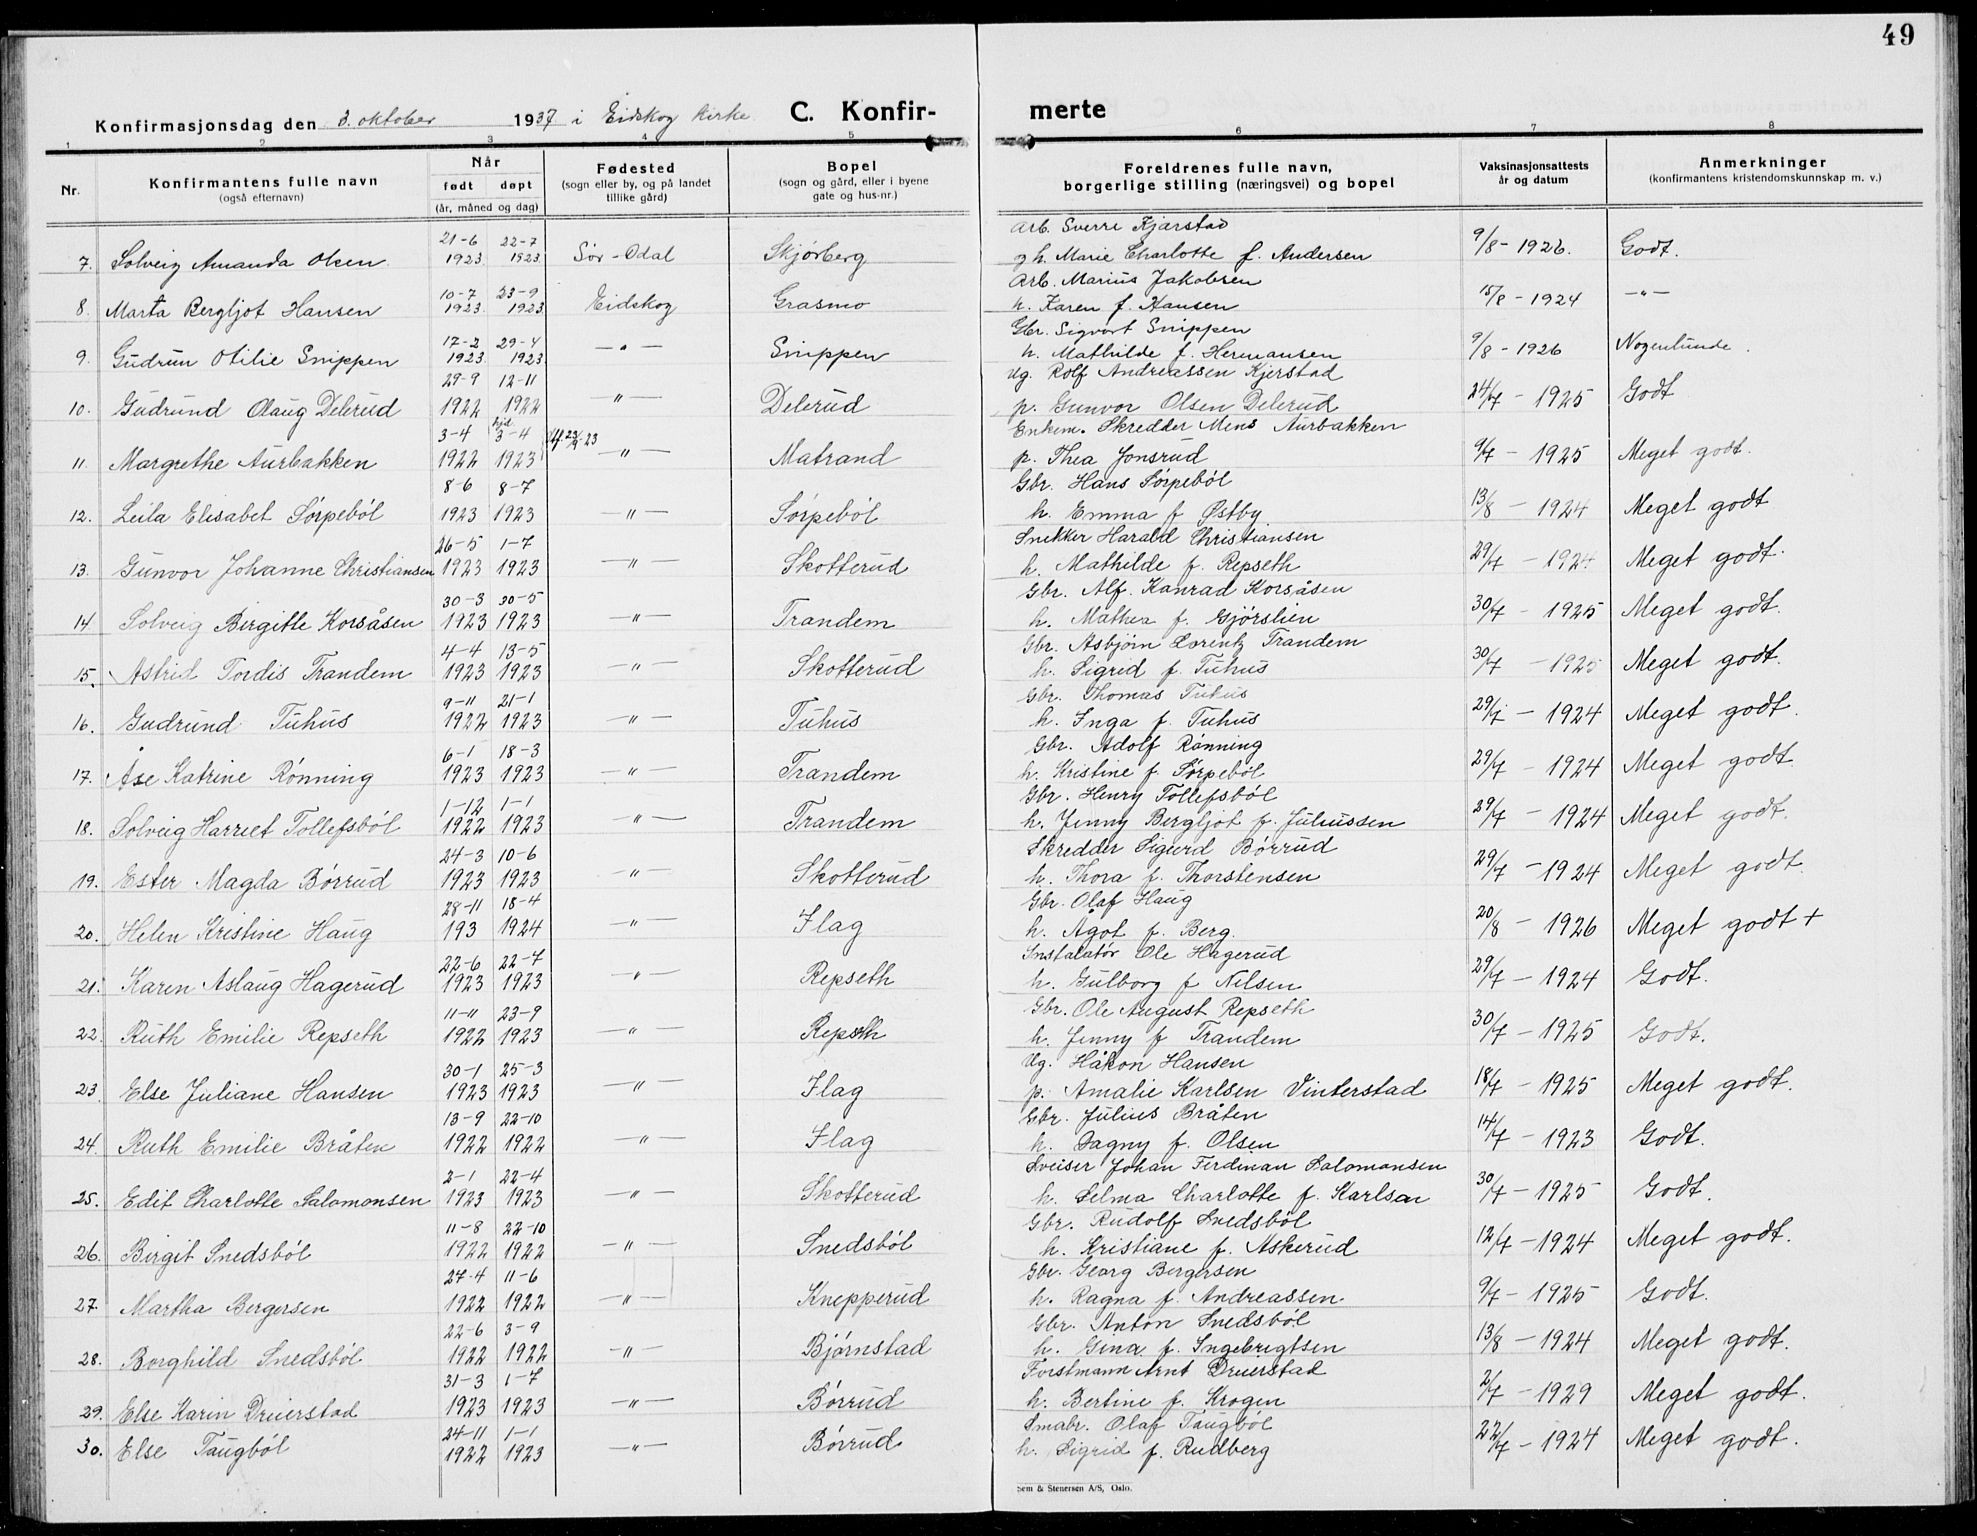 49
Konfirmasjonsdag den 3. oktober 1937 i Eidskog kirke C. Konfir- merte
1 2 3 4 5 6 7 8
Nr. Konfirmantens fulle navn (også efternavn) Når født døpt (år, måned og dag) Fødested (sogn eller by, og på landet tillike gård) Bopel (sogn og gård, eller i byene gate og hus-nr.) Foreldrenes fulle navn, borgerlige stilling (næringsvei) og bopel Vaksinasjonsattests år og datum Anmerkninger (konfirmantens kristendomskunnskap m. v.)
7. Solveig Amanda Olsen 21-6 1923 22-7 1923 Sør-Odal Skjørberg Arb. Sverre Kjærstad og h. Marie Charlotte f. Andersen 9/8 - 1926. Godt.
8. Marta Bergljot Hansen 10-7 1923 23-9 1923 Eidskog Grasmo Arb. Marius Jakobsen h. Karen f. Hansen 15/8 - 1924 -"-
9. Gudrun Otilie Snippen 17-2 1923 29-4 1923 -"- Snippen Gbr. Sigvart Snippen h. Mathilde f. Hermansen 9/8 - 1926 Nogenlunde.
10. Gudrund Olaug Delerud 29-9 1922 12-11 1922 -"- Delerud Ug. Rolf Andreassen Kjerstad p. Gunvor Olsen Delerud 24/7 - 1925 Godt
11. Margrethe Aurbakken 3-4 1922 hjd. 3-4 1923 -"- Matrand Enkem. Skredder Mens Aurbakken p. Thea Jonsrud 9/7 - 1925 Meget godt.
12. Leila Elisabet Sørpebøl 8-6 1923 8-7 1923 -"- Sørpebøl Gbr. Hans Sørpebøl h. Emma f Østby 13/8 - 1924 Meget godt
13. Gunvor Johanne Christiansen 26-5 1923 1-7 1923 -"- Skotterud Snekker Harald Christiansen h. Mathilde f. Repseth 29/7 - 1924 Meget godt.
14 Solveig Birgitte Korsåsen 30-3 1923 20-5 1923 -"- Trandem Gbr. Alf. Konrad Korsåsen h. Mathea f. Gjørslien 30/7 - 1925 Meget godt.
15. Astrid Tordis Trandem 4-4 1923 13-5 1923 -"- Skotterud Gbr. Asbjørn Lorentz Trandem h. Sigrid f. Tuhus 30/7 - 1925 Meget godt.
16. Gudrund Tuhus 9-11 1922 21-1 1923 -"- Tuhus Gbr. Thomas Tuhus h. Inga f. Tuhus 29/7 - 1924 Meget godt.
17. Åse Katrine Rønning 6-1 1923 18-3 1923 -"- Trandem Gbr. Adolf Rønning h. Kristine f. Sørpebøl 29/7 - 1924 Meget godt.
18. Solveig Harriet Tollefsbøl 1-12 1922 1-1 1923 -"- Trandem Gbr. Henry Tollefsbøl h. Jenny Bergljot f. Juliussen 29/7 - 1924 Meget godt.
19. Ester Magda Børrud 24-3 1923 10-6 1923 -"- Skotterud Skredder Sigurd Børrud h. Thora f. Thorstensen 29/7 - 1924 Meget godt.
20. Helen Kristine Haug 28-11 193 18-4 1924 -"- Flag Gbr. Olaf Haug h. Ågot f. Berg. 20/8 - 1926 Meget godt +
21. Karen Aslaug Hagerud 22-6 1923 22-7 1923 -"- Repseth Instalatør Ole Hagerud h. Gulborg f Nilsen 29/7 - 1924 Godt.
22. Ruth Emilie Repseth 11-11 1922 23-9 1923 -"- Repseth Gbr. Ole August Repseth h. Jenny f Trandem 30/7 - 1925 Godt.
23. Else Juliane Hansen 30-1 1923 25-3 1923 -"- Flag Ug. Håkon Hansen p. Amalie Karlsen Vinterstad 18/7 - 1925 Meget godt.
24. Ruth Emilie Bråten 13-9 1922 22-10 1922 -"- Flag Gbr. Julius Bråten h. Dagny f. Olsen 14/7 - 1923 Godt.
25. Edit Charlotte Salomonsen 2-1 1923 22-4 1923 -"- Skotterud Sveiser Johan Ferdinan Salomonsen h. Selma Charlotte f. Karlson 30/7 - 1925 Godt.
26. Birgit Snedsbøl 11-8 1922 22-10 1922 -"- Snedsbøl Gbr. Rudolf Snedsbøl h. Kristiane f. Askerud 12/7 - 1924 Meget godt.
27. Martha Bergersen 27-4 1922 11-6 1922 -"- Knepperud Gbr. Georg Bergersen h. Ragna f. Andreassen 9/7 - 1925 Godt.
28. Borghild Snedsbøl 22-6 1922 3-9 1922 -"- Bjørnstad Gbr. Anton Snedsbøl h. Gina f. Ingebrigtsen 13/8 - 1924 Meget godt.
29. Else Karin Dreierstad 31-3 1923 1-7 1923 -"- Børrud Forstmann Arnt Dreierstad h. Bertine f. Krogen 2/7 - 1929 Meget godt.
30. Else Taugbøl 24-11 1922 1-1 1923 -"- Børrud Småbr. Olaf Taugbøl h. Sigrid f. Rudberg 22/7 - 1924 Meget godt.
Sem & Stenersen A/S, Oslo.